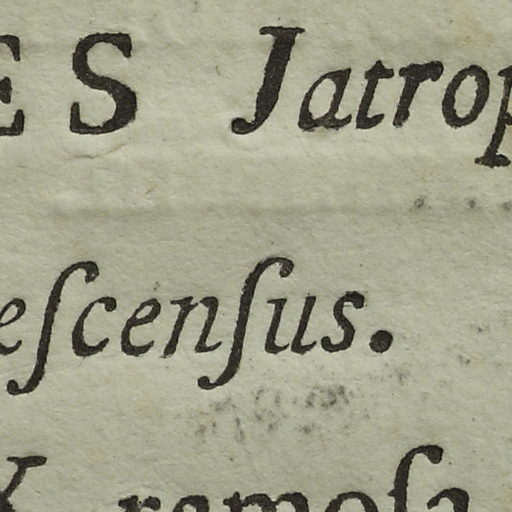 ES Jatrop
eſcenſus.
X ramoſa